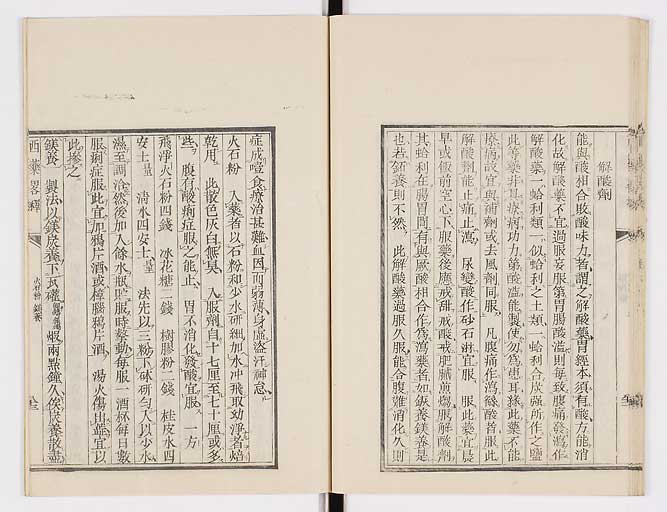 解酸劑
能與酸相合敗酸味力者謂之解酸藥胃經本須有酸方能消
化故解酸藥不宜過服妄服第胃腸酸濫則每致腹痛發瀉作
解酸藥一蛤利類一似蛤利之土類一蛤利合炭強所作之鹽
此等藥非其療病功力第酸濫能製使勿爲患耳緣此藥不能
療病故宜與補劑或去風劑同服凡腹痛作瀉緣酸者服此
解酸劑能止痛止瀉尿變酸作砂石淋宜服服此藥宜晨
早或飯前空心下服藥後應戒甜戒酸戒肥膩煎煿服解酸劑
其蛤利在腸胃間有與厥酸相合作爲瀉藥者如鋉養鎂養是
也若鈣養則不然此解酸藥過服久服能合腹難消化久則
症成噎食療治甚難血因而弱薄身虛盜汗神怠
火石粉入藥者以石粉和少水研細加水中飛取幼淨名焙
乾用此散色灰白無臭入服劑自十七厘至七十厘或多
些腹有酸痢症服之能止胃不消化發酸宜服一方
飛淨火石粉四錢冰花糖二錢樹膠粉二錢桂皮水四
安士量清水四安士量法先以三粉下砵研勻入以少水
濕至調洽然後加入餘水瓶貯服時擎動每服一酒杯每日數
服痢症服此宜加鴉片酒或樟腦鴉片酒湯火傷出膿宜以
此摻之
鎂養製法以鎂炭養下瓦礶煅兩點鐘久俟炭養散盡
西藥畧釋
火石粉 鎂養